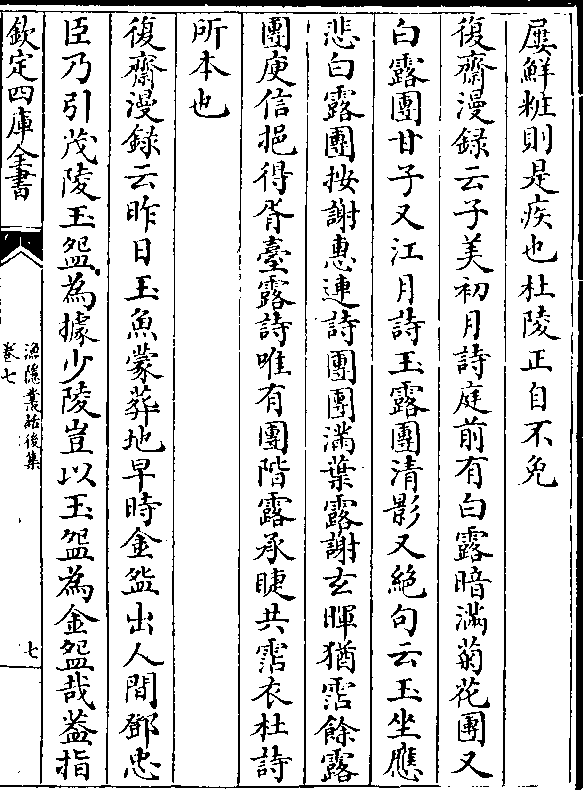 屢鮮粧則是疾也杜陵正自不免
復齋漫録云子美初月詩庭前有白露暗滿菊花團又
白露團甘子又江月詩玉露團清影又絶句云玉坐應
悲白露團按謝惠連詩團團滿葉露謝玄暉猶霑餘露
團庾信挹得胥臺露詩唯有團階露承睫共霑衣杜詩
所本也
復齋漫録云昨日玉魚蒙葬地早時金盌出人間鄧忠
臣乃引茂陵玉盌為據少陵豈以玉盌為金盌哉葢指
欽定四庫全書
漁隱叢話後集
卷七
七